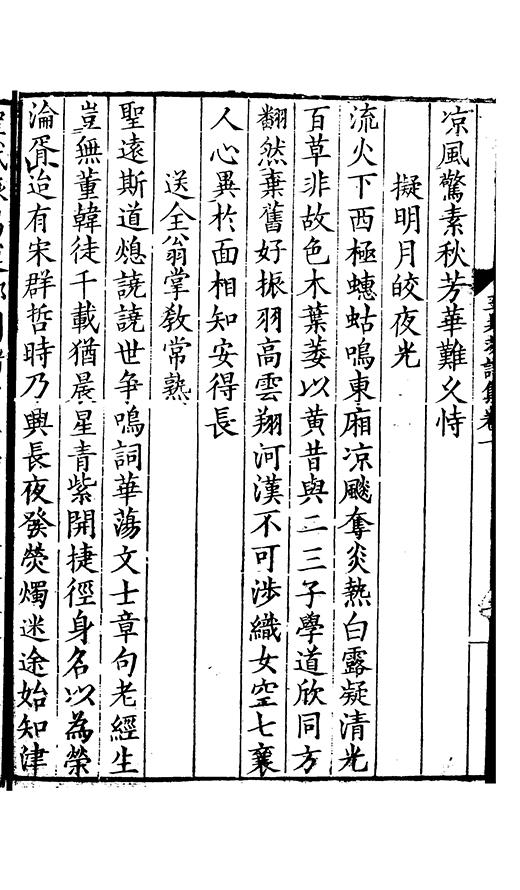 凉風驚素秋芳華難久恃
擬明月皎夜光
流火下西極蟪蛄鳴東廂凉飈奪炎熱白露凝清光
百草非故色木葉萎以黄昔與二三子學道欣同方
翻然棄舊好振羽高雲翔河漢不可涉織女空七襄
人心異於面相知安得長
送全翁掌敎常熟
聖遠斯道熄譊譊世争鳴詞華蕩文士章句老經生
豈無董韓徒千載猶晨星青紫開捷徑身名以為榮
淪胥迨有宋群哲時乃興長夜發熒燭迷途始知津